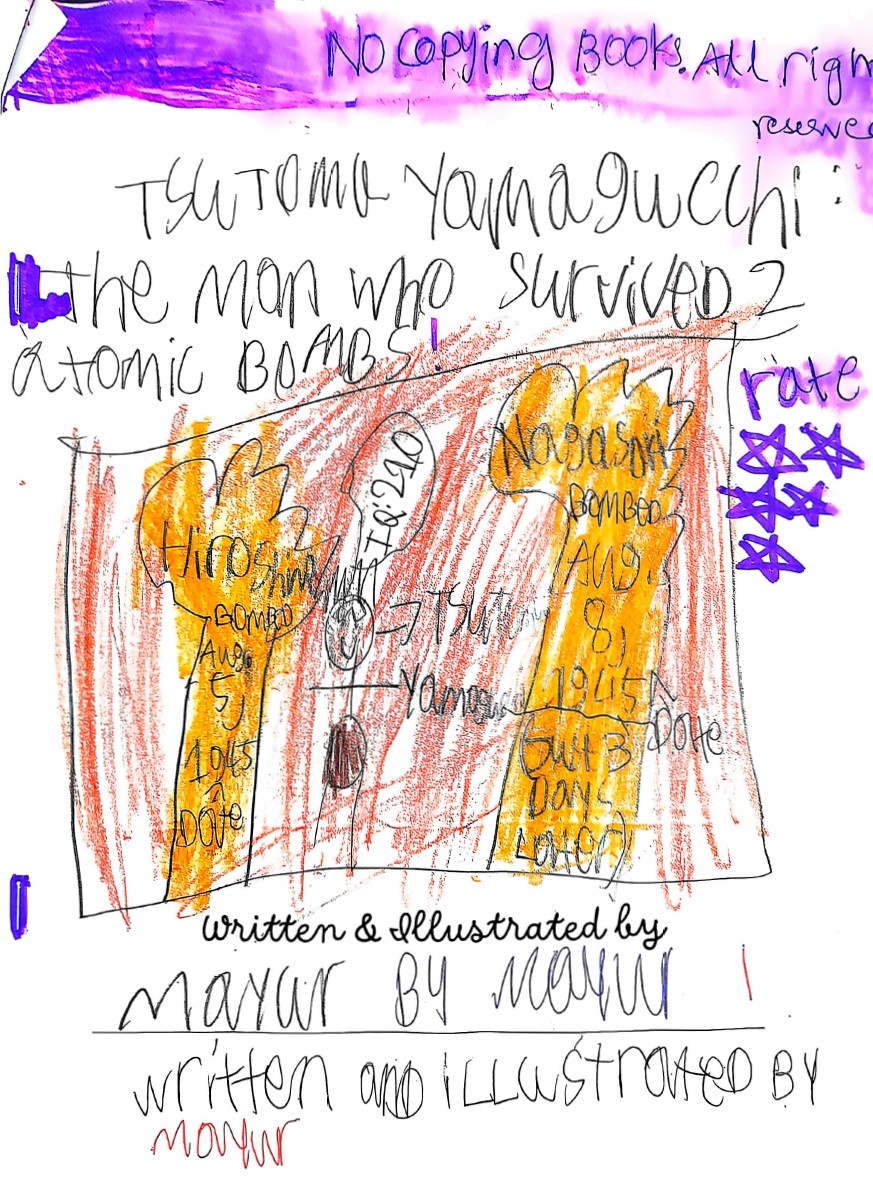 No Copying Books. All righ
reserve
Tsutomu Yamaguchi :
the man who survived 2
atomic BOMBS!
rate
IQ: 210
Hiroshima
BOMBED
Aug.
5,
1945
Date
Tsutomu
Yamaguchi
Nagasaki
BOMBED
Aug.
8,
1945
Date
Days
Later)
Written & Illustrated by
Mayur By Mayur
written and illustrated By
Mayur